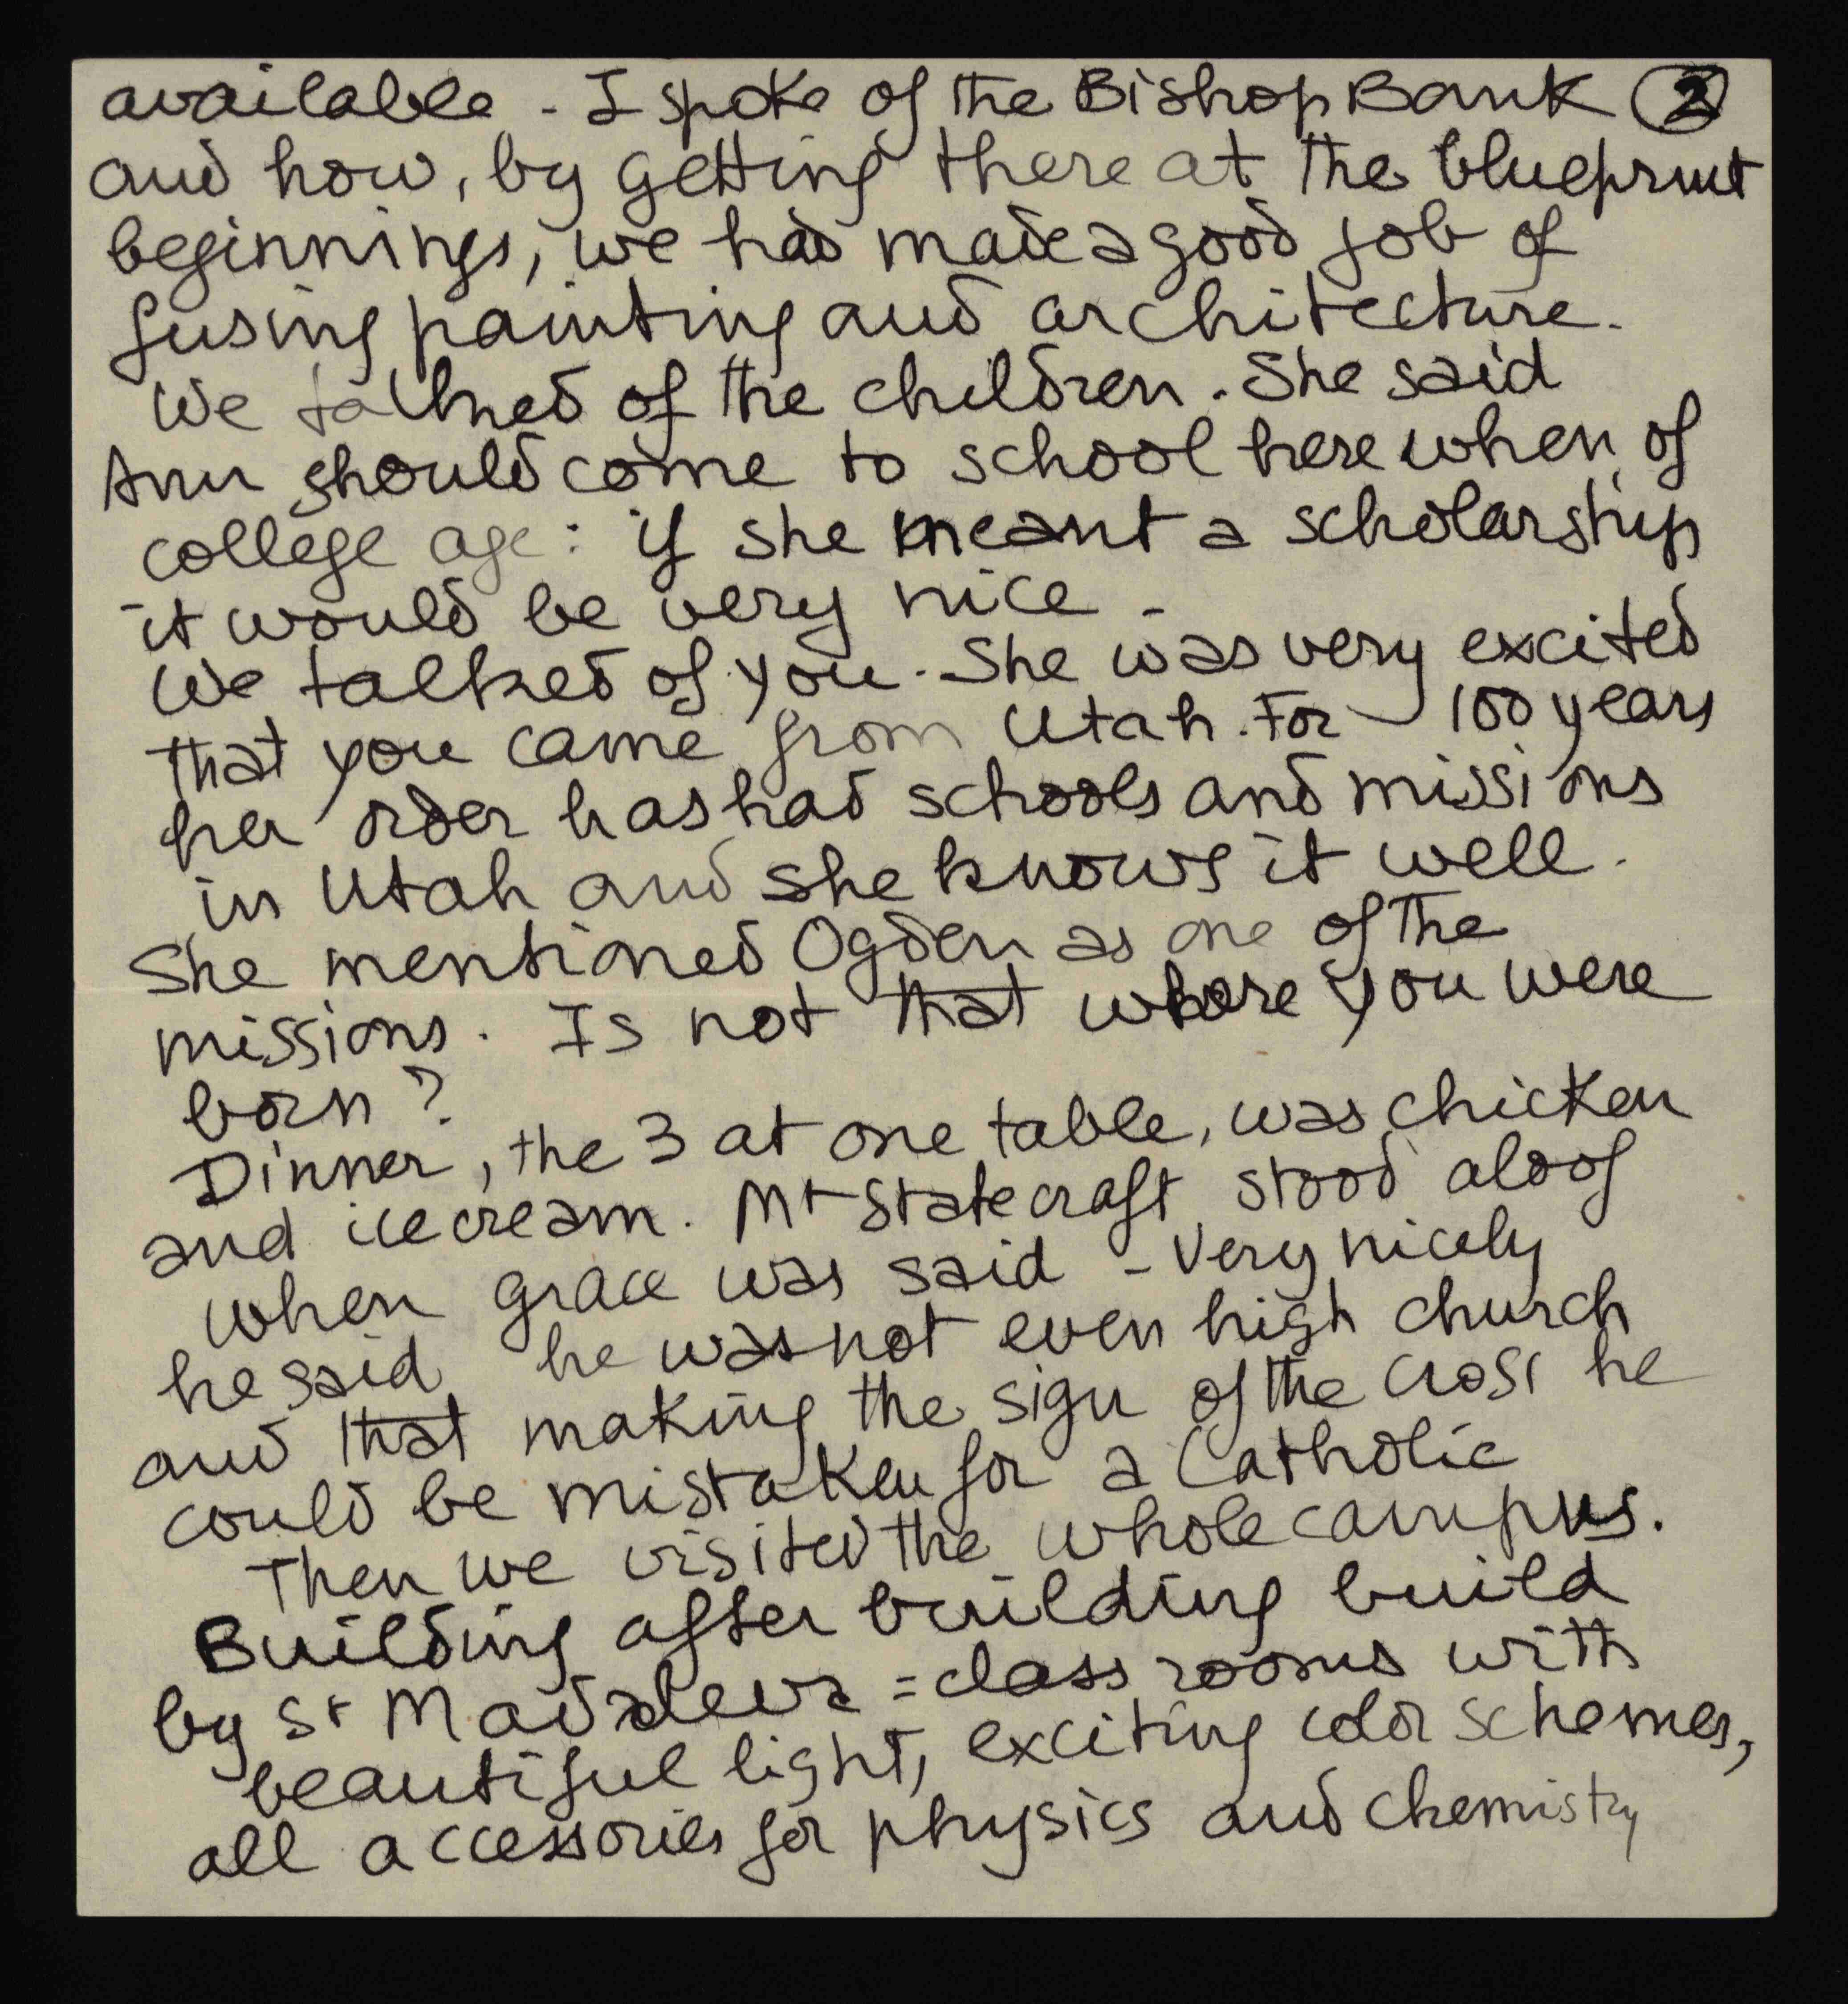 available - I spoke of the Bishop Bank 2
and how, by getting there at the blueprint
beginnings, we had made a good job of
fusing painting and architecture.
We talked of the children. She said
Ann should come to school here when of
college age: if she meant a scholarship
it would be very nice -
We talked of you. She was very excited
that you came from Utah. For 100 years
her order has had schools and missions
in Utah and she knows it well.
She mentioned Ogden as one of the
missions. Is not that where you were
born?
Dinner, the 3 at one table, was chicken
and icecream. Mr Statecraft stood aloof
when grace was said - Very nicely
he said he was not even high church
and that making the sign of the cross he
could be mistaken for a Catholic
Then we visited the whole campus.
Building after building build
by Sr Madaleva = class rooms with
beautiful light, exciting color schemes,
all accessories for physics and chemistry